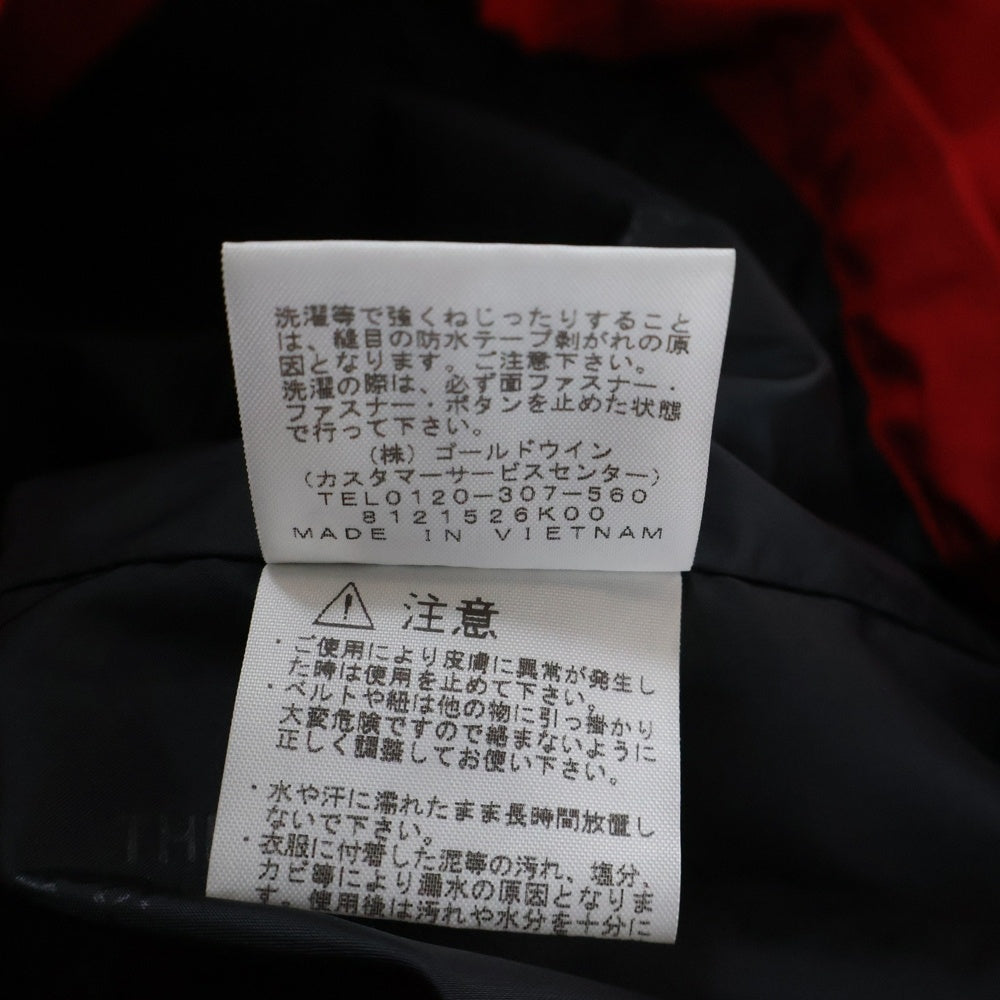 洗濯等で強くねじったりすること
は、縫目の防水テープ剥がれの原
因となります。ご注意下さい。
洗濯の際は、必ず面ファスナー・
ファスナー・ボタンを止めた状態
で行って下さい。
(株) ゴールドウイン
(カスタマーサービスセンター)
TEL0120-307-560
8121526K00
MADE IN VIETNAM
注意
・ご使用により皮膚に異常が発生し
た時は使用を止めて下さい。
・ベルトや紐は他の物に引っ掛かり
大変危険ですので絡まないように
正しく調整してお使い下さい。
・水や汗に濡れたまま長時間放置し
ないで下さい。
・衣服に付着した泥等の汚れ、塩分、
カビ等により漏水の原因となりま
す。使用後は汚れや水分を十分に
TH